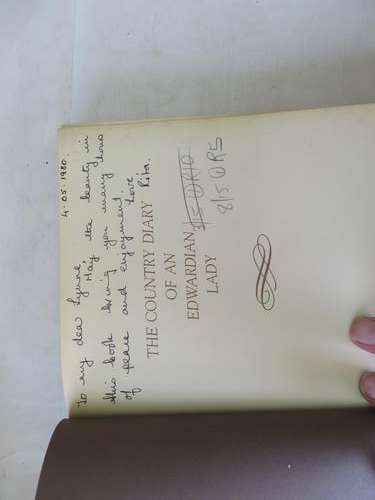 4.05.1980.
To my dear Lynne,
May the beauty in
this book bring you many hours
of peace and enjoyment.
Love
Rita.
THE COUNTRY DIARY
OF AN
EDWARDIAN
LADY
8/5